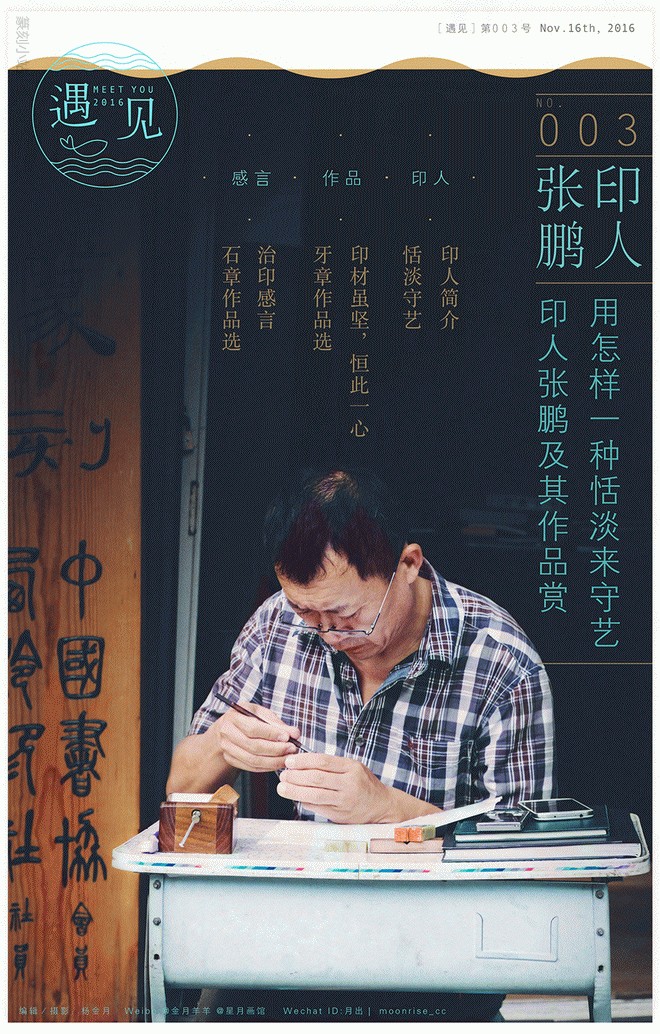 ［遇见］第003号 Nov.16th, 2016
篆刻小
遇见
MEET YOU
2016
NO.
003
印人
张鹏
用怎样一种恬淡来守艺
印人张鹏及其作品赏
印人
印人简介
恬淡守艺
作品
印材虽坚，恒此一心
牙章作品选
感言
治印感言
石章作品选
篆刻
中國書協會員
社員
编辑／摄影：杨金月 Weibo@金月羊羊 @星月画馆 Wechat ID:月出| moonrise_cc